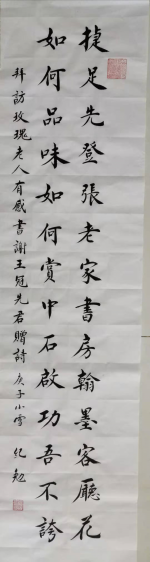 捷足先登張老家書房翰墨客廳花
如何品味如何賞中石啟功吾不誇
拜訪玫瑰老人有感書謝王冠先君贈詩庚子小雪 紀勉